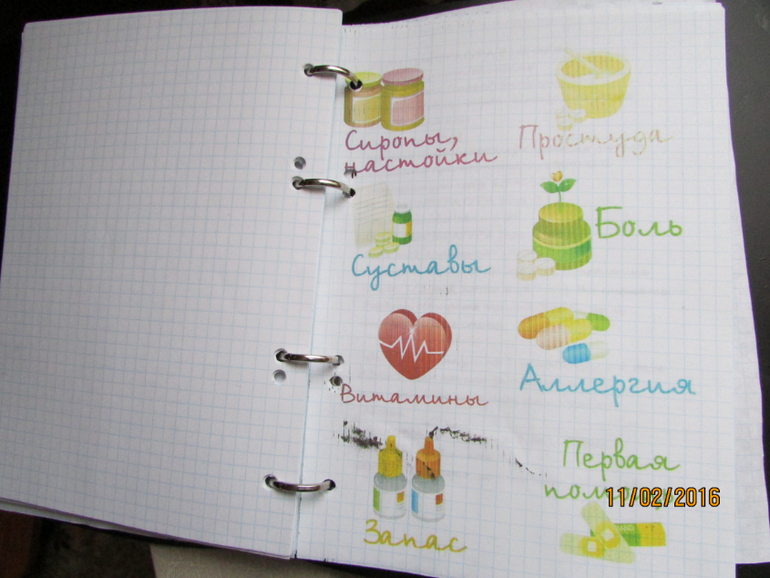 Сиропы,
настойки
Простуда
Суставы
Боль
Витамины
Аллергия
Запас
Первая
11/02/2016